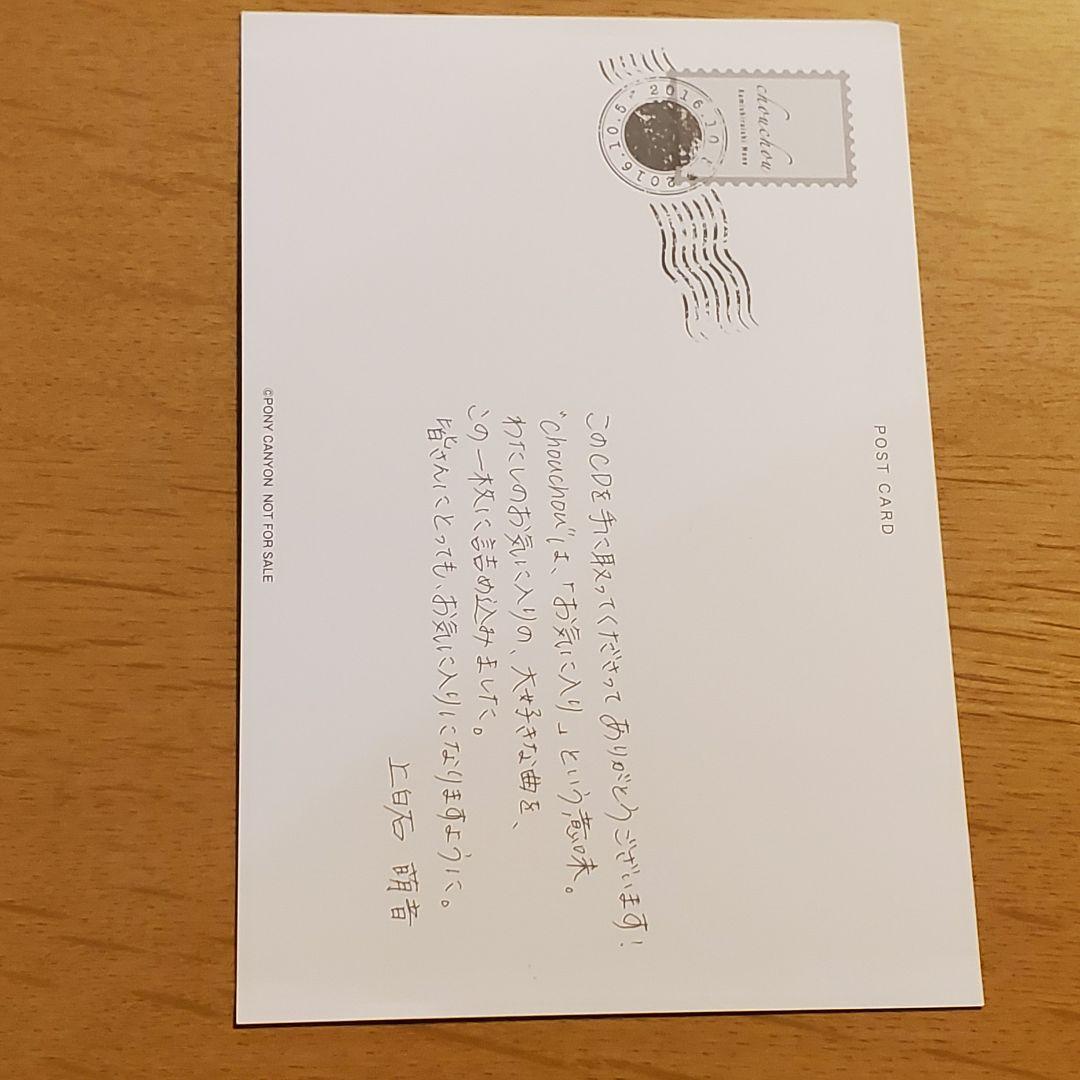 chouchou
Kamishiraishi Mone
2016.10.5
2016.10
POST CARD
このCDを手に取ってくださってありがとうございます!
"chouchou"は、「お気に入り」という意味。
わたしのお気に入りの、大好きな曲を、
この一枚に詰め込みました。
皆さんにとっても、お気に入りになりますように。
上白石 萌音
©PONY CANYON NOT FOR SALE